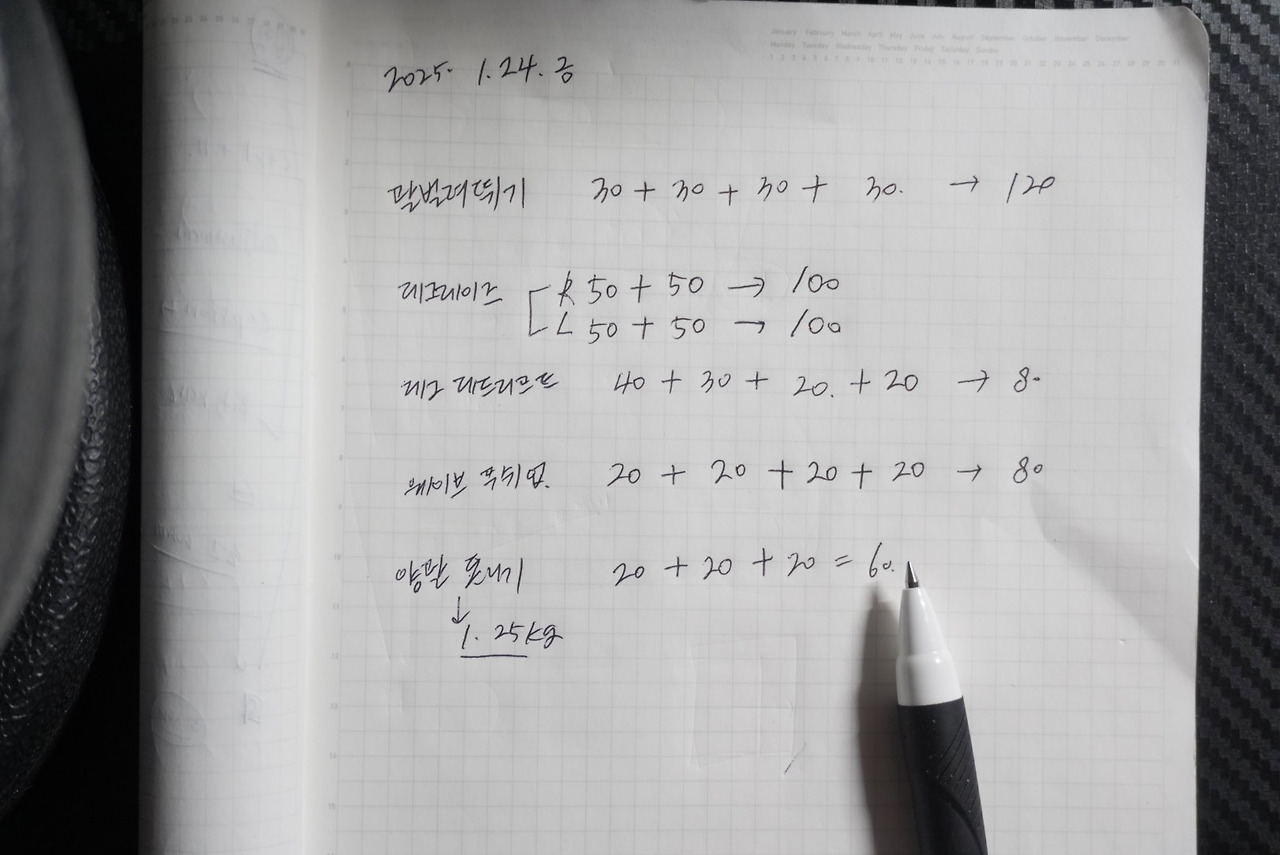 January February March April May June July August September October November December
Monday Tuesday Wednesday Thursday Friday Saturday Sunday
1 2 3 4 5 6 7 8 9 10 11 12 13 14 15 16 17 18 19 20 21 22 23 24 25 26 27 28 29 30 31
2025. 1.24.금
팔벌려뛰기 30 + 30 + 30 + 30. → 120
R 50 + 50 → 100
L 50 + 50 → 100
40 + 30 + 20. + 20 → 80
웨이브 푸쉬업. 20 + 20 + 20 + 20 → 80
20 + 20 + 20 = 60.
↓
1.25kg